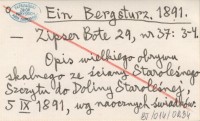 Ein Bergsturz. 1891.
— Zipser Bote 29, nr 37: 3-4.
Opis wielkiego obrywu
skalnego ze ściany Staroleśnego
Szczytu do Doliny Staroleśnej,
5 IX 1891, wg naocznych świadków.